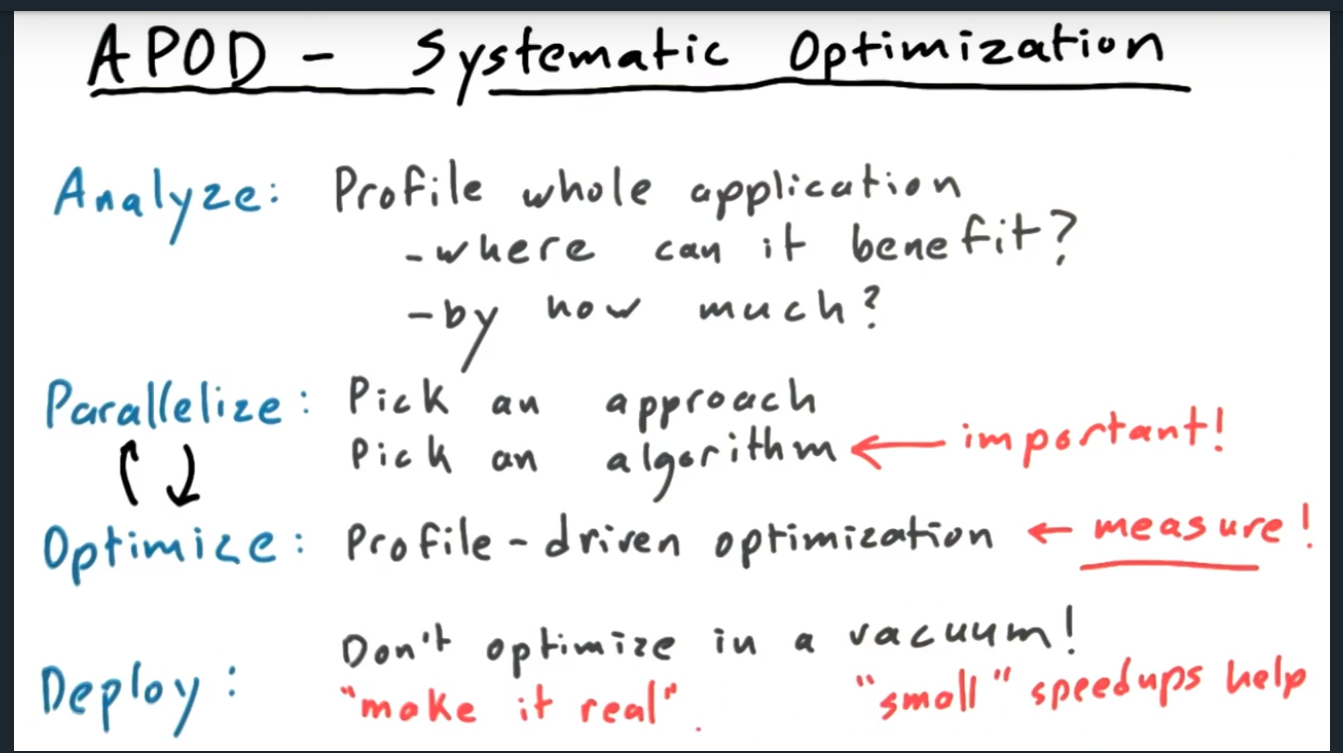 APOD - Systematic Optimization
Analyze: Profile whole application
- where can it benefit?
- by how much?
Parallelize: Pick an approach
Pick an algorithm ← important!
Optimize: Profile-driven optimization ← measure!
Don't optimize in a vacuum!
Deploy: "make it real". "small" speedups help